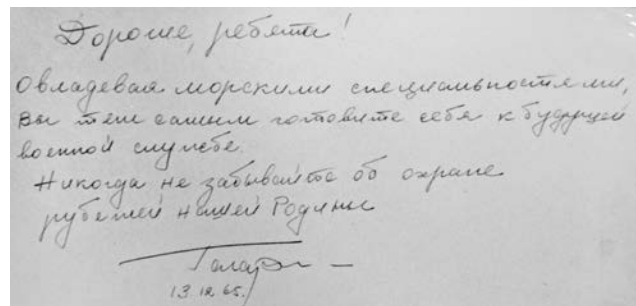 Дорогие, ребята!
Овладевая морскими специальностями,
Вы тем самым готовите себя к будущей
военной службе.
Никогда не забывайте об охране
рубежей нашей Родины
13.12.65.